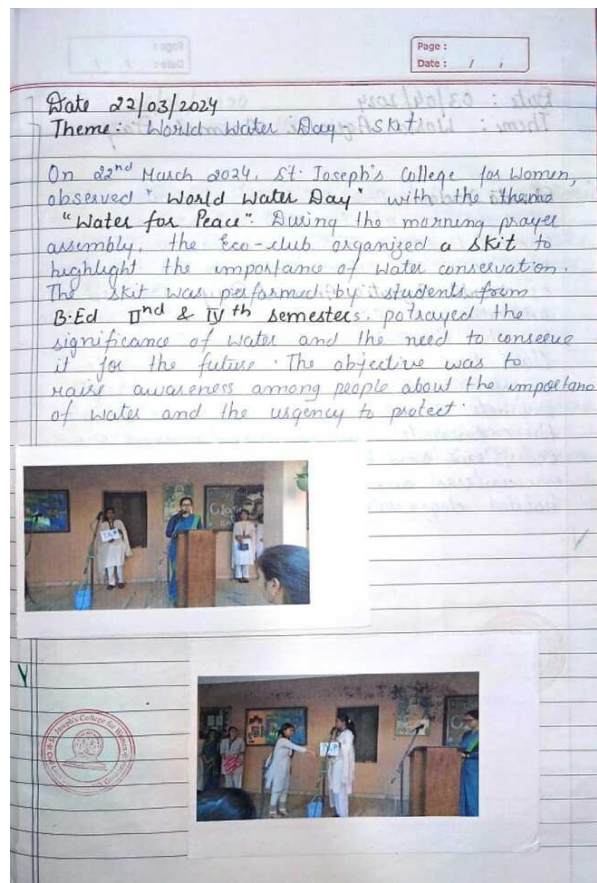 Page :
Date : / /
Date 22/03/2024
Theme: World Water Day - Skit
On 22nd March 2024. St. Joseph's College for Women,
observed "World Water Day" with the theme
"Water for Peace". During the morning prayer
assembly, the Eco-club organized a skit to
highlight the importance of water conservation.
The skit was performed by students from
B.Ed IInd & IVth semesters. potrayed the
significance of water and the need to conserve
it for the future. The objective was to
raise awareness among people about the importanc
of water and the urgency to protect.
St. Joseph's College for Women